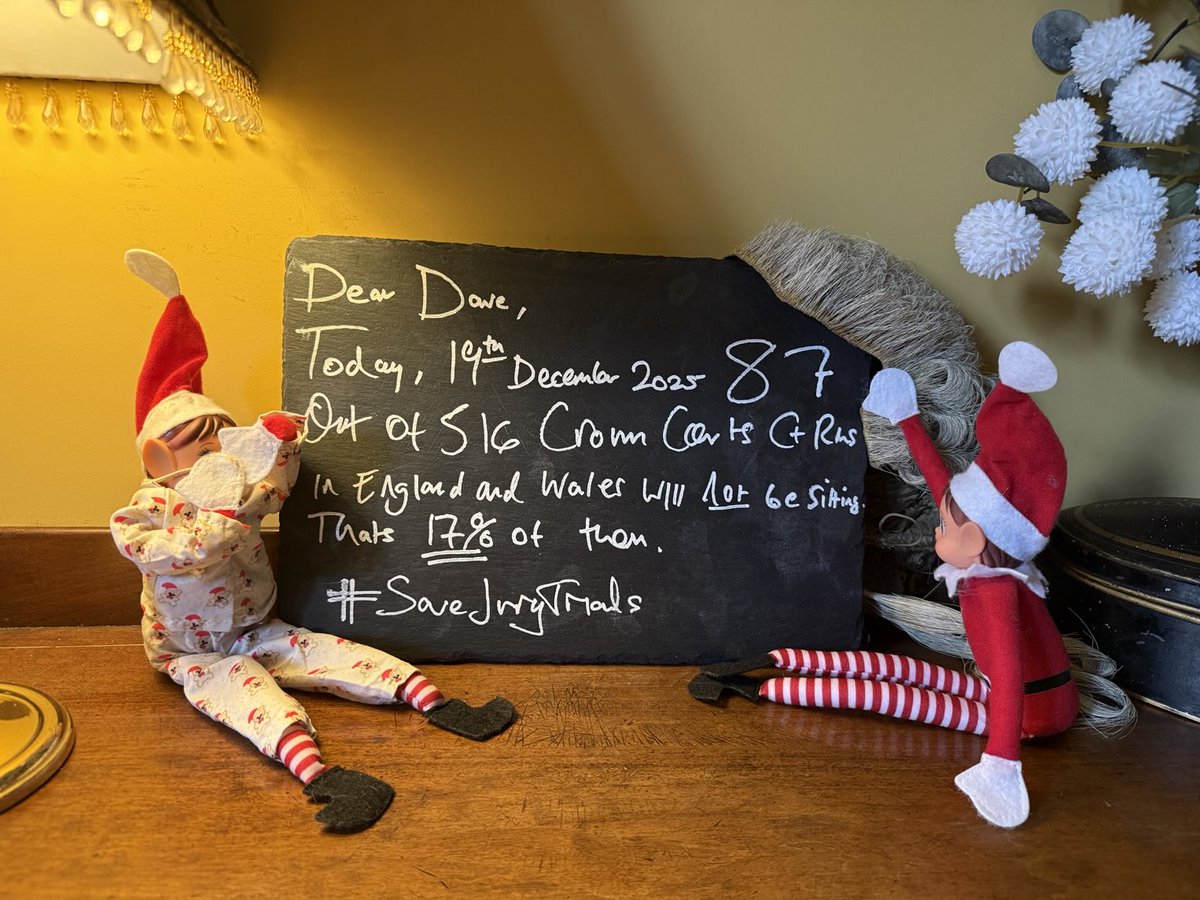 Dear Dave,
Today, 19th December 2025 87
Out of 516 Crown Courts Ct Rms
in England and Wales will not be sitting.
Thats 17% of them.
#SaveJuryTrials